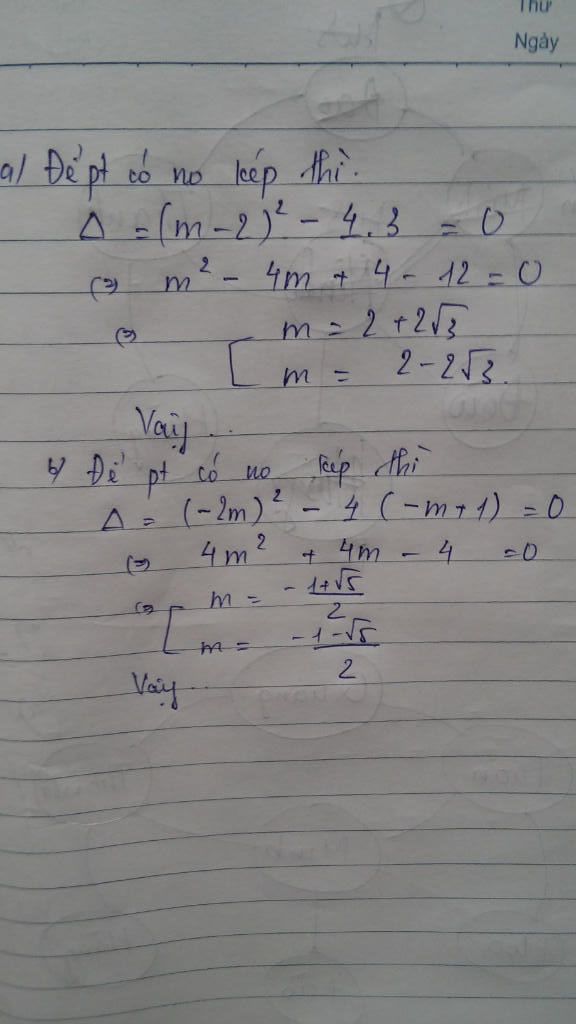 Thứ
Ngày
a/ Để pt có no kép thì.
Δ = (m - 2)² - 4.3 = 0
(=) m² - 4m + 4 - 12 = 0
(=) [ m = 2 + 2√3
m = 2 - 2√3.
Vậy ..
b/ Để pt có no kép thì
Δ = (-2m)² - 4 (-m+1) = 0
(=) 4m² + 4m - 4 = 0
(=) [ m = -1+√5 / 2
m = -1-√5 / 2
Vậy ..